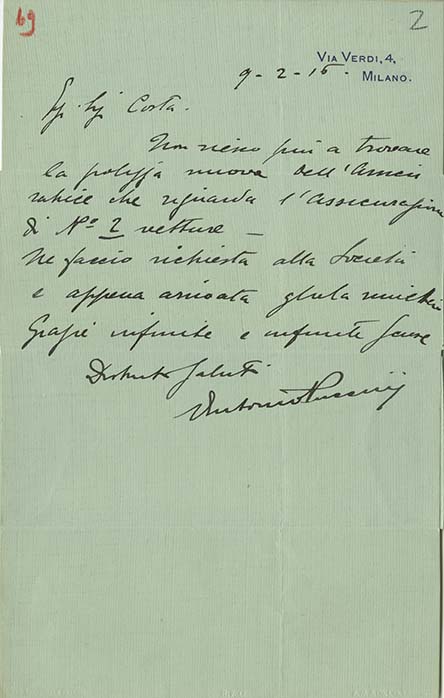 69
2
VIA VERDI, 4,
MILANO.
9-2-16-
Eg. Sig. Costa.
Non riesco più a trovare
la polizza nuova dell'Assicu
ratrice che riguarda l'Assicurazione
di No 2 vetture —
Ne faccio richiesta alla Società
e appena arrivata gliela
Grazie infinite e infinite scuse
Distinti saluti
Antonio Puccini